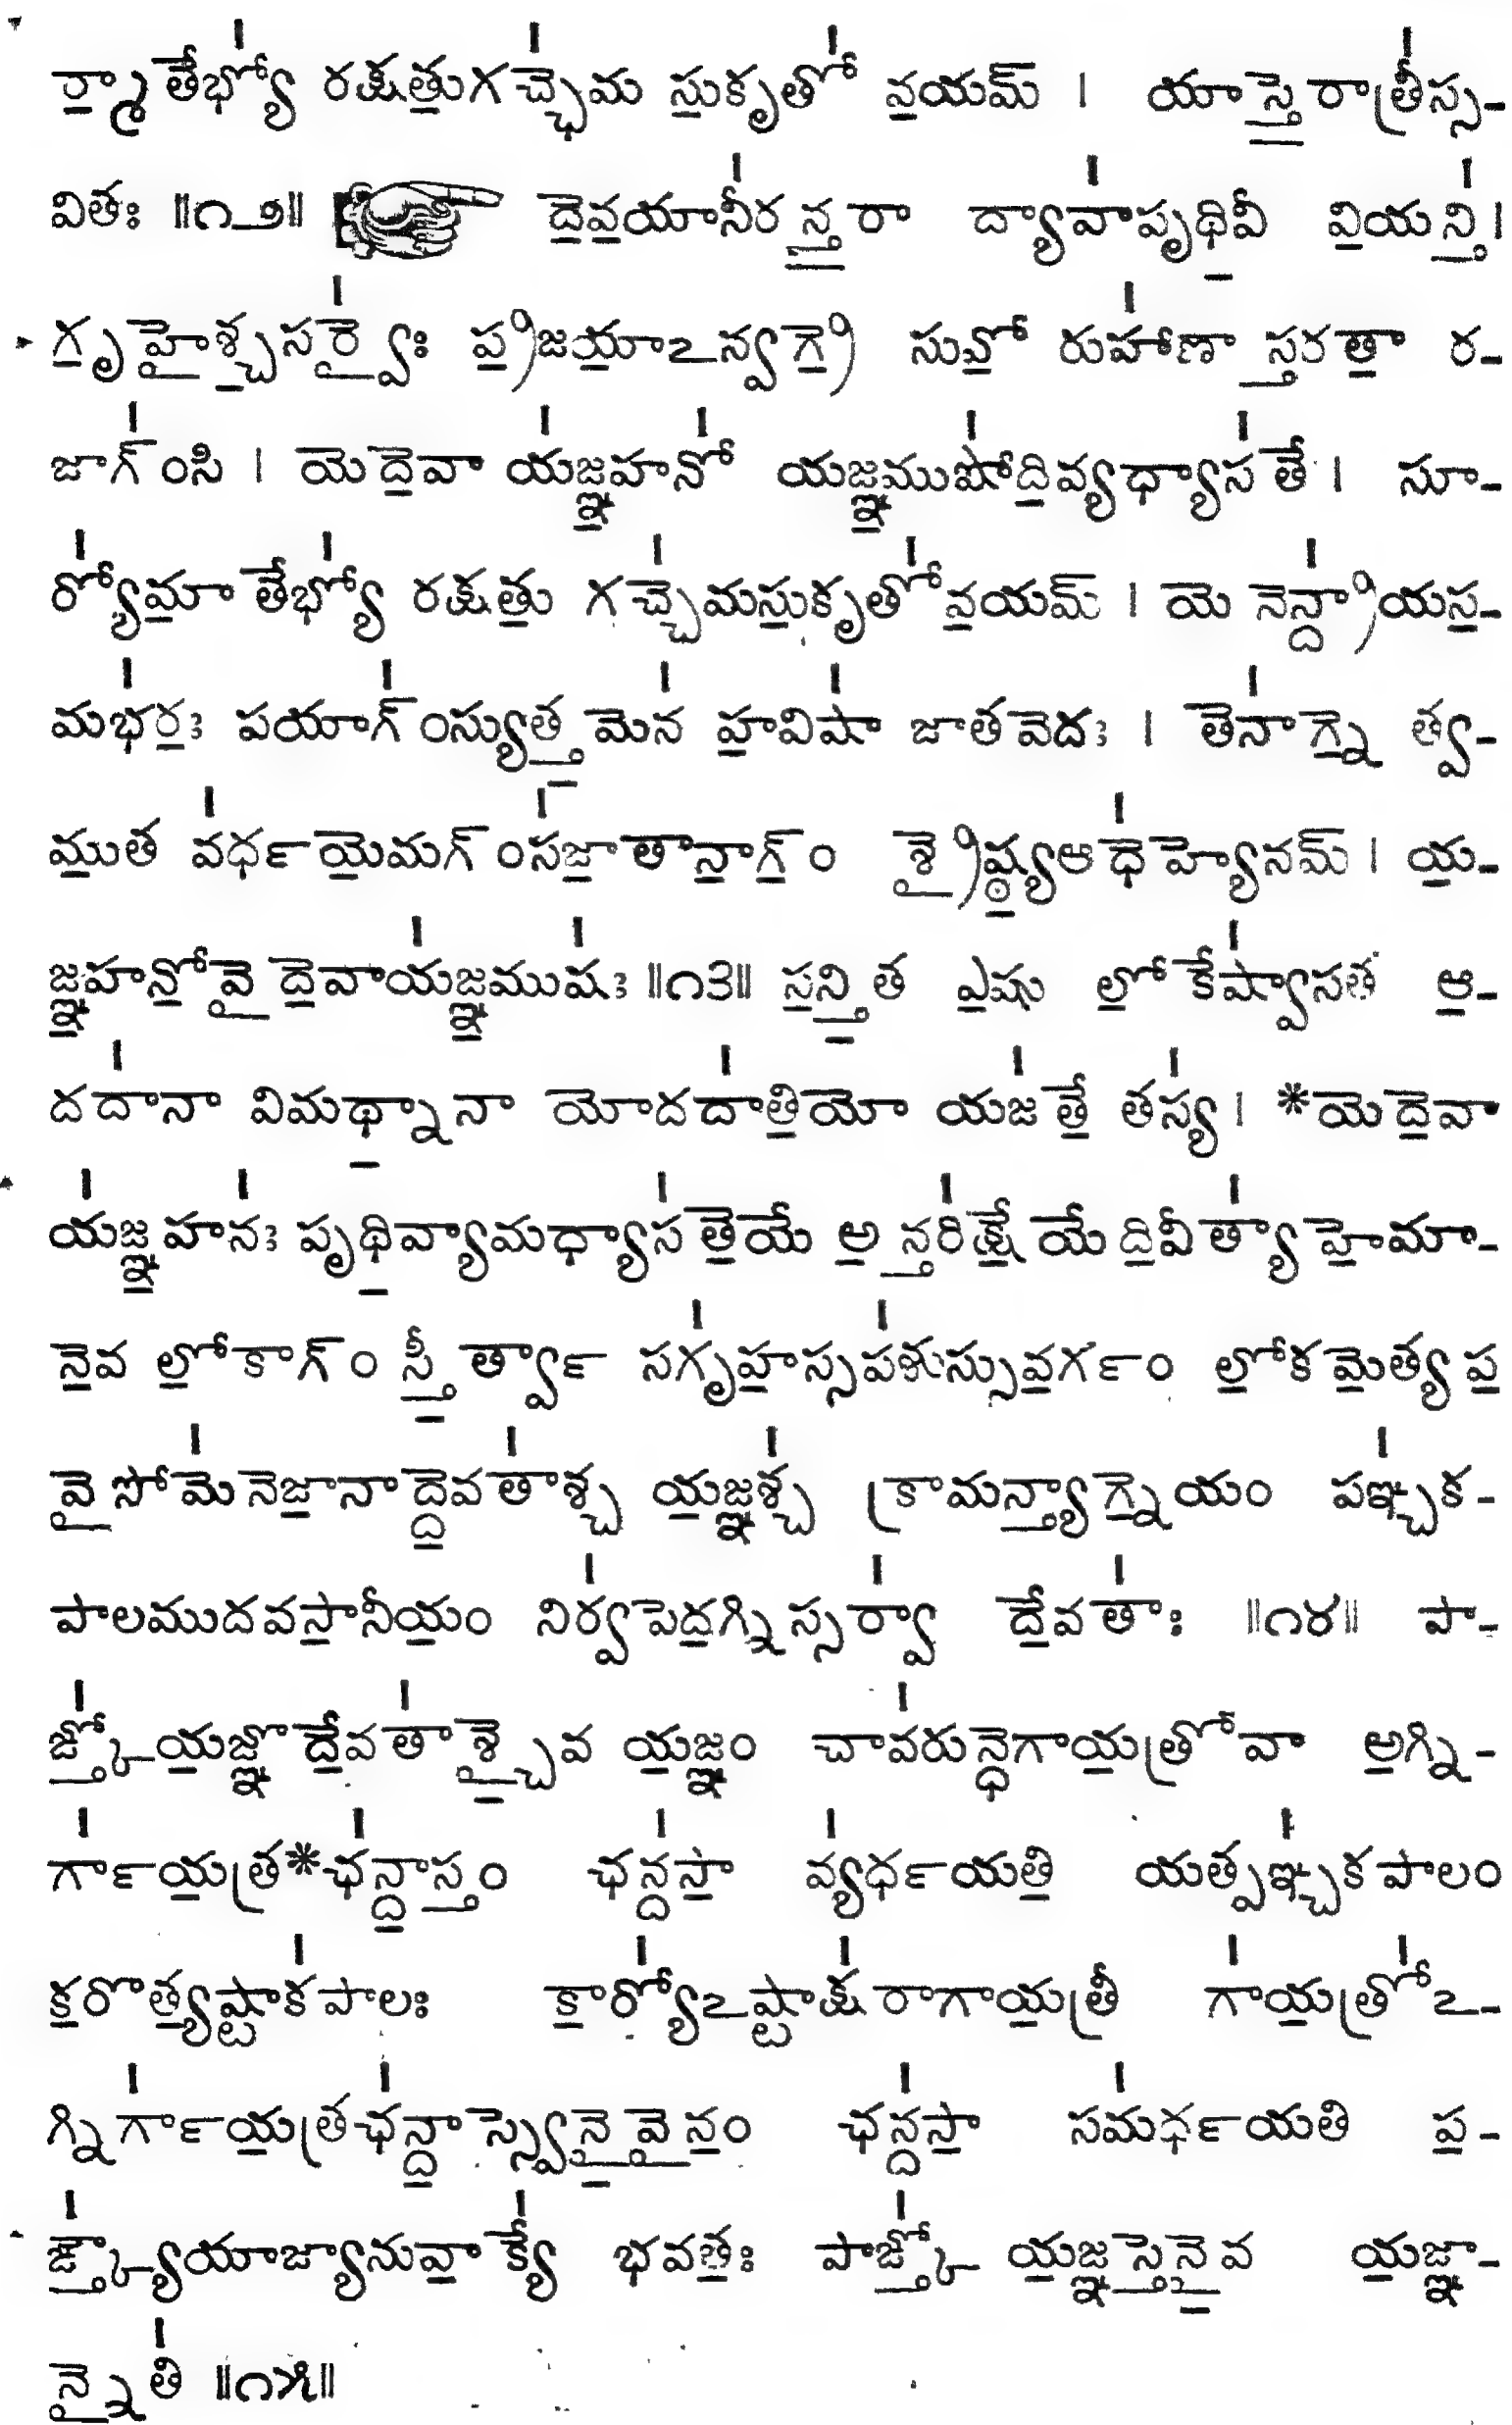 ర్మా తేభ్యో రక్షతుగచ్ఛేమ సుకృతో వయమ్ । యాస్తెరాత్రీస్స-
వితః ॥౧౨॥ దెవయానీరన్తరా ద్యావాపృథివీ వియన్తి।
గృహైశ్చసర్వైః ప్రజయాఽన్వగ్రె సువో రుహాణా స్తరతా ర-
జాగ్‌ంసి । యెదెవా యజ్ఞహనో యజ్ఞముషోదివ్యధ్యాసతే । సూ-
ర్యోమా తేభ్యో రక్షతు గచ్చెమసుకృతోవయమ్ । యె నెన్ద్రాయస-
మభరః పయాగ్‌ంస్యుత్తమెన హవిషా జాతవెదః । తెనాగ్నె త్వ-
ముత వర్ధయెమగ్‌ంసజాతానాగ్‌ం శ్రైష్ఠ్యఆధెహ్యేనమ్ । య-
జ్ఞహనోవై దెవాయజ్ఞముషః ॥౧౩॥ సన్తి త ఎషు లోకేష్వాసత ఆ-
దదానా విమథ్నానా యోదదాతియో యజతే తస్య। *యెదెవా
యజ్ఞహనః పృథివ్యామధ్యాసతెయే అన్తరిక్షేయేదివీత్యాహెమా-
నెవ లోకాగ్‌ం స్తీర్త్వా సగృహస్సపశుస్సువర్గం లోకమెత్యప
వైసోమెనెజానాద్దెవతాశ్చ యజ్ఞశ్చ క్రామన్త్యాగ్నెయం పఞ్చక-
పాలముదవసానీయం నిర్వపెదగ్నిస్సర్వా దేవతాః ॥౧౪॥ పా-
ఙ్క్తో యజ్ఞొదేవతాశ్చైవ యజ్ఞం చావరున్ధెగాయత్రోవా అగ్ని-
ర్గాయత్ర*ఛన్దాస్తం ఛన్దసా వ్యర్ధయతి యత్పఞ్చకపాలం
కరొత్యష్టాకపాలః కార్యోఽష్టాక్షరాగాయత్రీ గాయత్రోఽ-
గ్నిర్గాయత్రఛన్దాస్స్వెనైవైనం ఛన్దసా సమర్ధయతి ప-
ఙ్క్త్యౌయాజ్యానువాక్యే భవతః పాఙ్క్తో యజ్ఞస్తెనైవ యజ్ఞా-
న్నైతి ॥౧౫॥